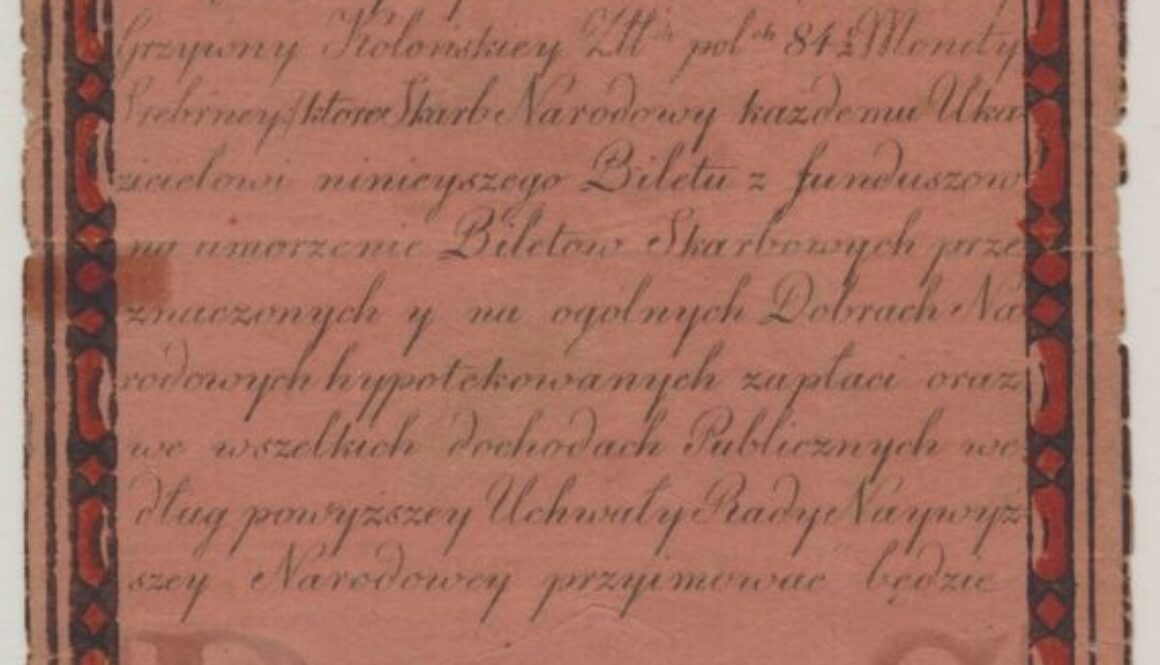 Grzywny Kolońskiey Złł pol 84½ Monety
Srebrney, ktore Skarb Narodowy każdemu Uka-
zicielowi ninieyszego Biletu z funduszow
na umorzenie Biletow Skarbowych prze
znaczonych y na ogolnych Dobrach Na
rodowych hypotekowanych zapłaci oraz
we wszelkich dochodach Publicznych we-
dług powyższey Uchwały Rady Naywyż-
szey Narodowey przyimowac będzie